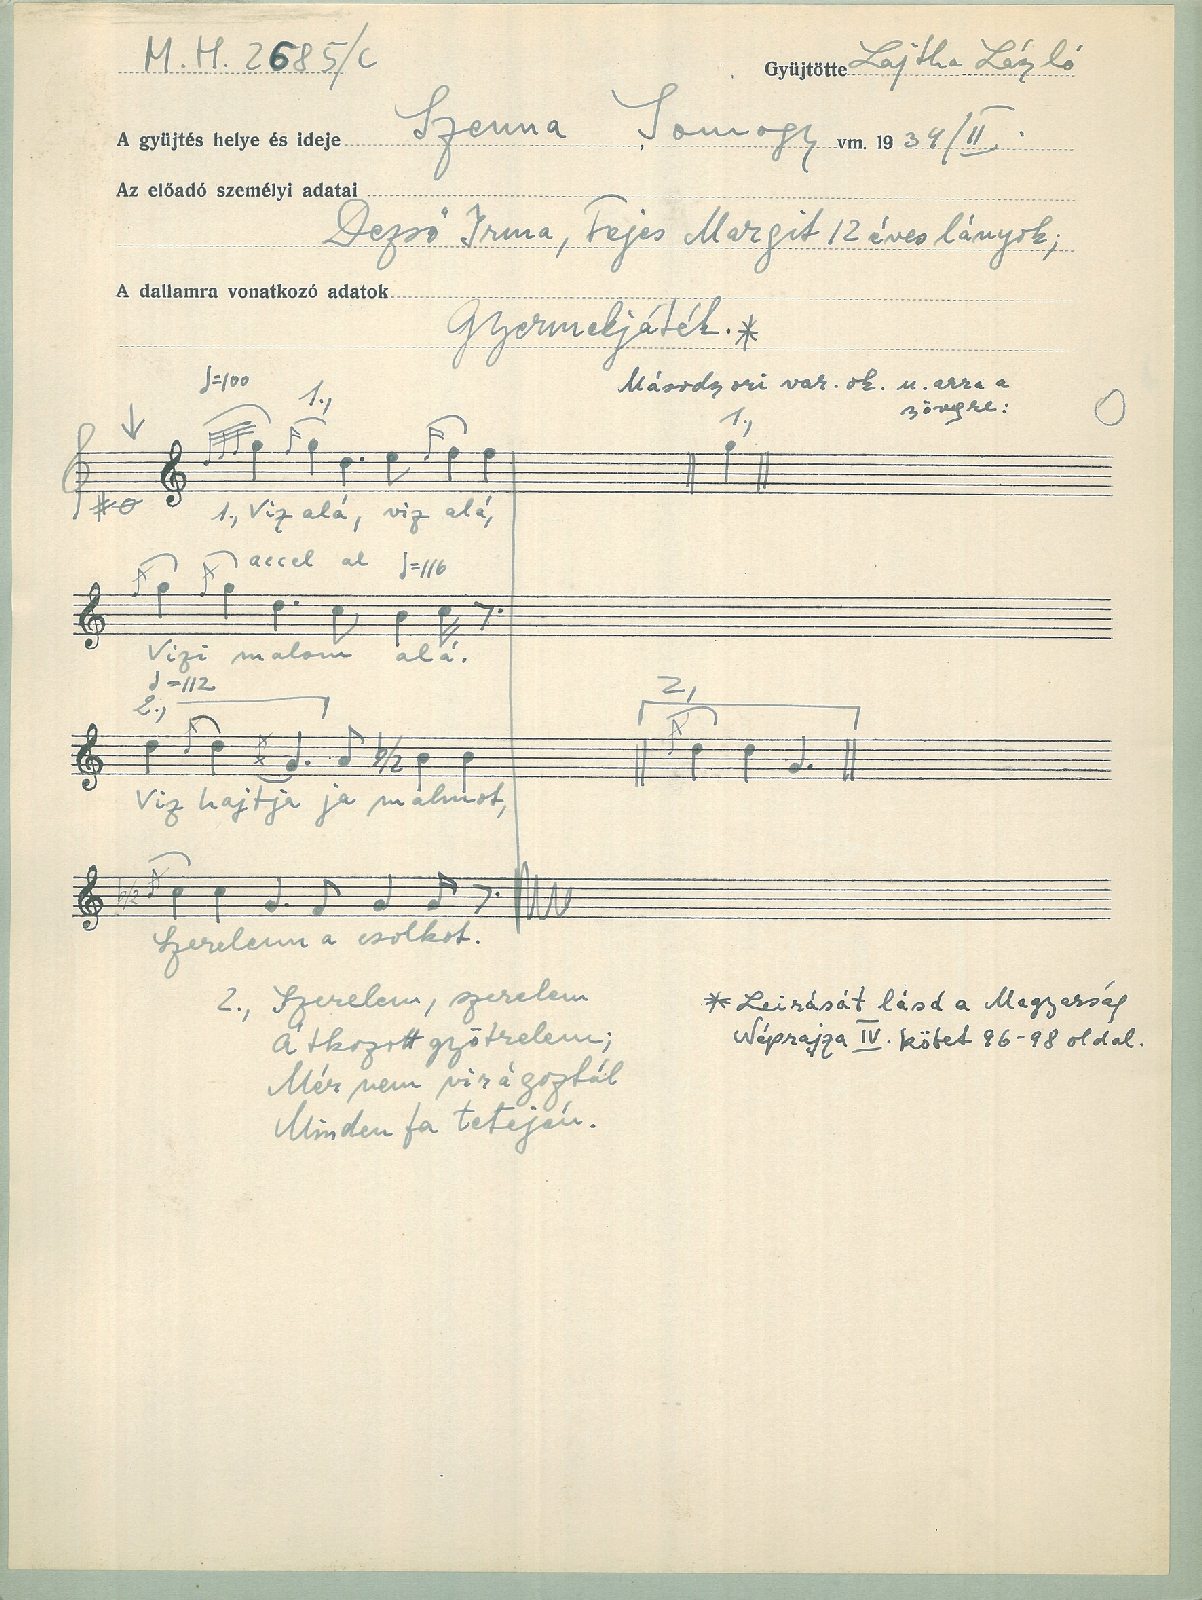 M.H. 2685/c
Gyüjtötte Lajtha László
A gyüjtés helye és ideje Szenna Somogy vm. 1934/II.
Az előadó személyi adatai
Dezső Irma, Fejes Margit 12 éves lányok;
A dallamra vonatkozó adatok
Gyermekjáték.*
♩=100
1.,
Másodszori var. ok. u. arra a
szövegre:
1.,
1., Viz alá, viz alá,
accel al ♩=116
Vizi malom alá.
♩=112
2.,
2,
Viz hajtja ja malmot,
Szerelem a csolkot.
2., Szerelem, szerelem
Átkozott gyötrelem;
Mér nem virágoztál
Minden fa tetején.
* Leirását lásd a Magyarság
Néprajza IV. kötet 96-98 oldal.